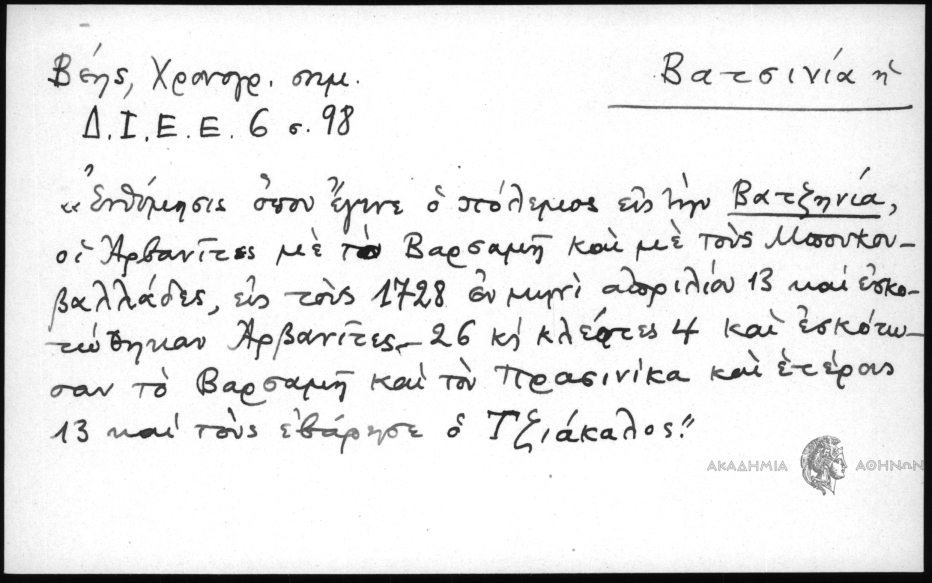 Βέης, Χρονογρ. σημ.
Βατσινία ἡ
Δ.Ι.Ε.Ε. 6 σ. 98
«Ἐνθύμησις ὅπου ἔγινε ὁ πόλεμος εἰς τὴν Βατζηνία,
οἱ Ἀρβανῖτες μὲ τὸ Βαρσαμῆ καὶ μὲ τοὺς Μπουκου-
βαλλάδες, εἰς τοὺς 1728 ἐν μηνὶ ἀπριλίου 13 καὶ ἐσκο-
τώθηκαν Ἀρβανῖτες 26 κὴ κλέφτες 4 καὶ ἐσκότω-
σαν τὸ Βαρσαμῆ καὶ τὸν Πρασινίκα καὶ ἑτέρους
13 καὶ τοὺς ἐβάρησε ὁ Τζιάκαλος."
ΑΚΑΔΗΜΙΑ ΑΘΗΝΩΝ